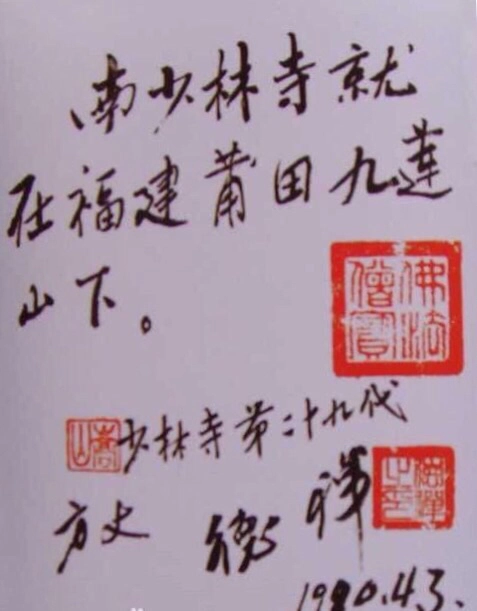 南少林寺就
在福建莆田九莲
山下。
佛法僧寶
嵩山
少林寺第二十九代
方丈 德禅
德禪之印
1990.4.3.